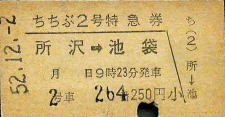 ちちぶ2号特急券
所沢➡池袋
月 日9時23分発車
2号車 264 250円小
52.12.-2
ち(2)所↓池